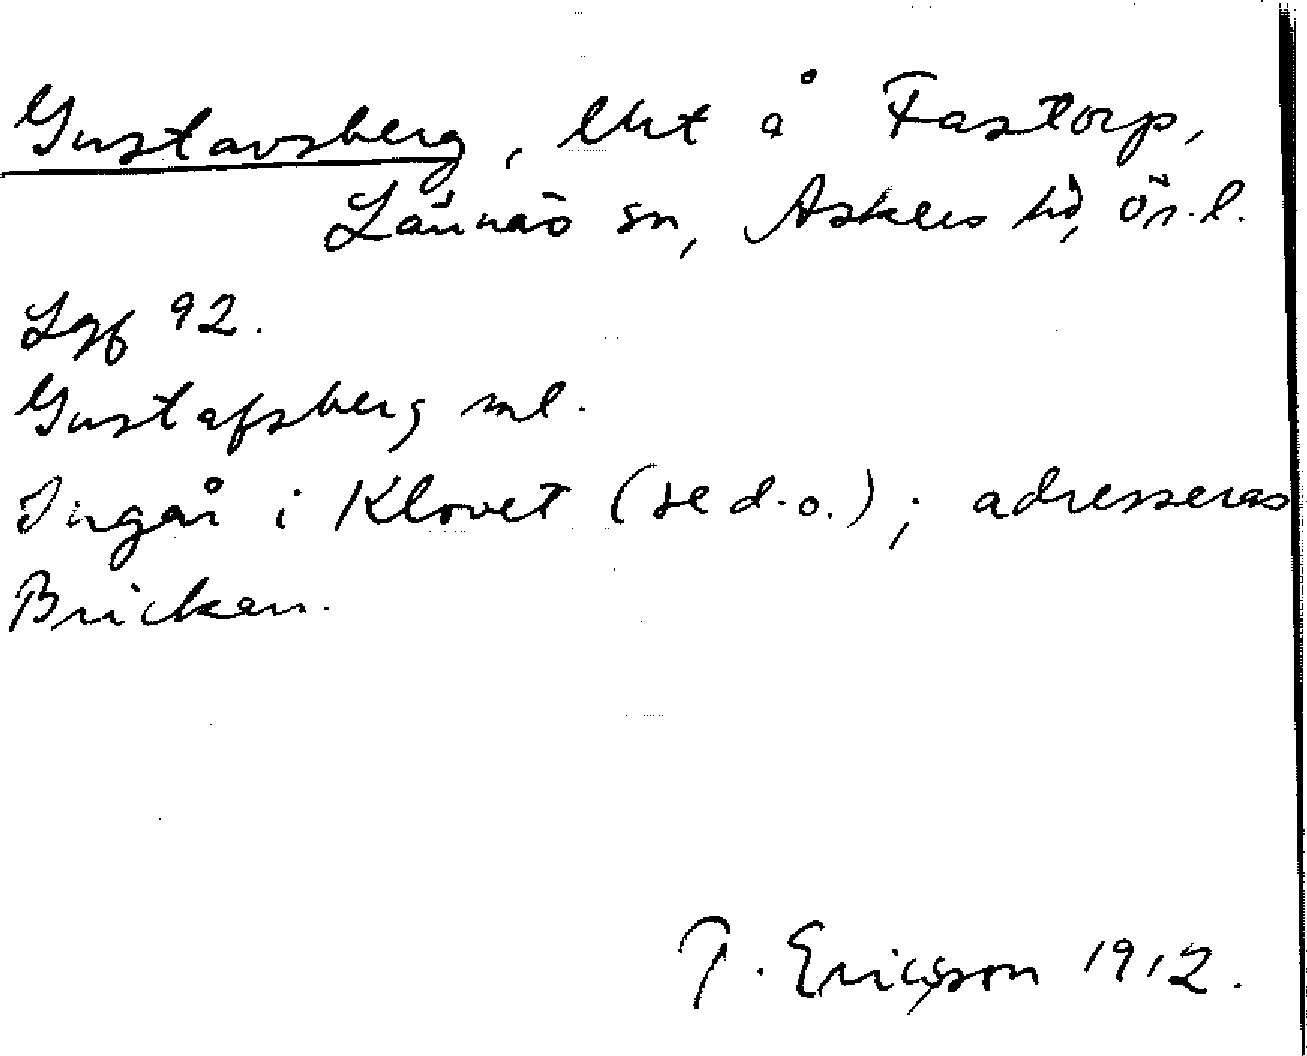 Gustavsberg, lht å Fastorp,
Lännäs sn, Askers hd, Ör. l.
Lgf 92.
Gustafsberg ml.
Ingår i Klovet (se d.o.); adresseras
Bricken.
T. Ericsson 1912.